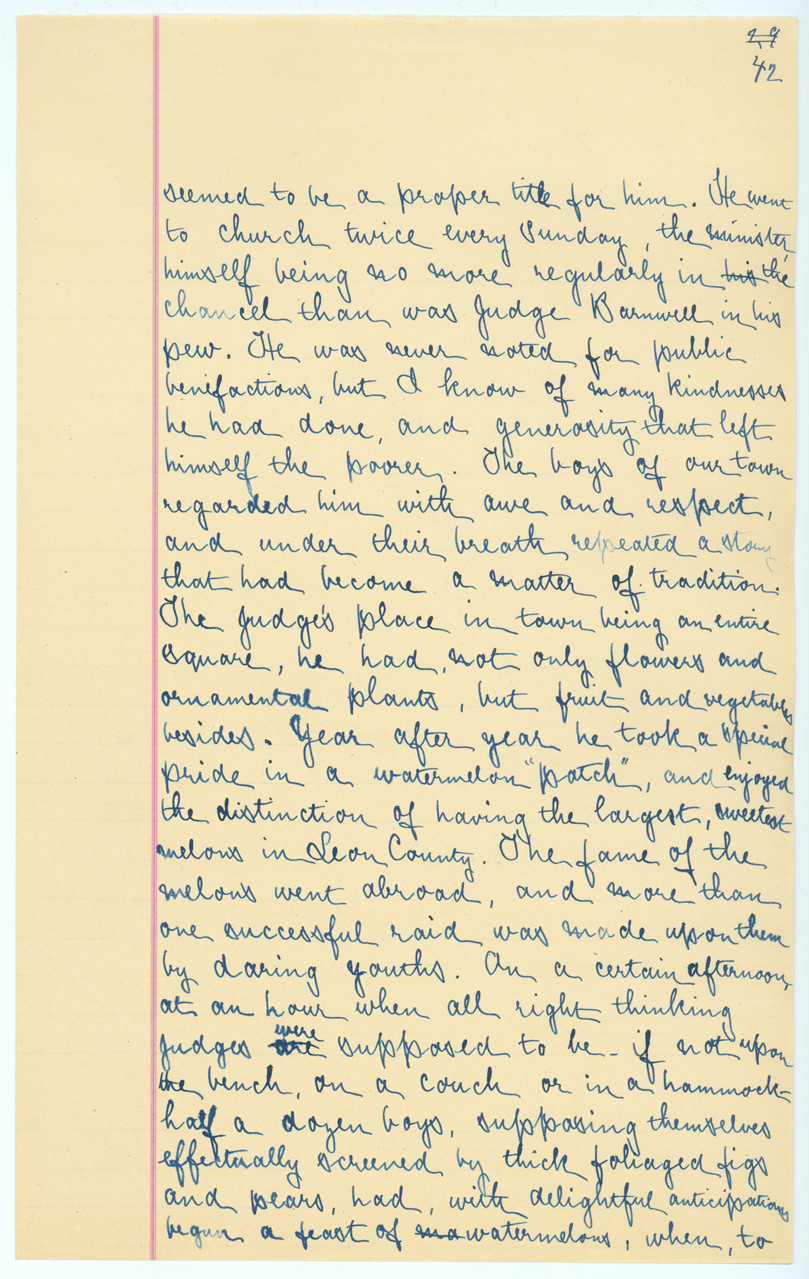 29
42
seemed to be a proper title for him. He went
to church twice every Sunday, the minister
himself being no more regularly in his the
chancel than was Judge Barnwell in his
pew. He was never noted for public
benefactions, but I know of many kindnesses
he had done, and generosity that left
himself the poorer. The boys of our town
regarded him with awe and respect,
and under their breath repeated a story
that had become a matter of tradition.
The Judge's place in town being an entire
square, he had, not only flowers and
ornamental plants, but fruit and vegetables
besides. Year after year he took a special
pride in a watermelon "patch", and enjoyed
the distinction of having the largest, sweetest
melons in Leon County. The fame of the
melons went abroad, and more than
one successful raid was made upon them
by daring youths. On a certain afternoon,
at an hour when all right thinking
were
judges are supposed to be - if not upon
the bench, on a couch or in a hammock -
half a dozen boys, supposing themselves
effectually screened by thick foliaged figs
and pears, had, with delightful anticipations
begun a feast of ma watermelons, when, to